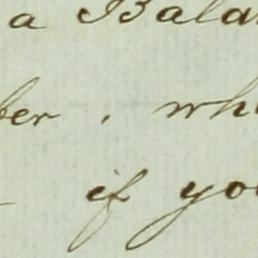 a Bala
ber, wh
if yo